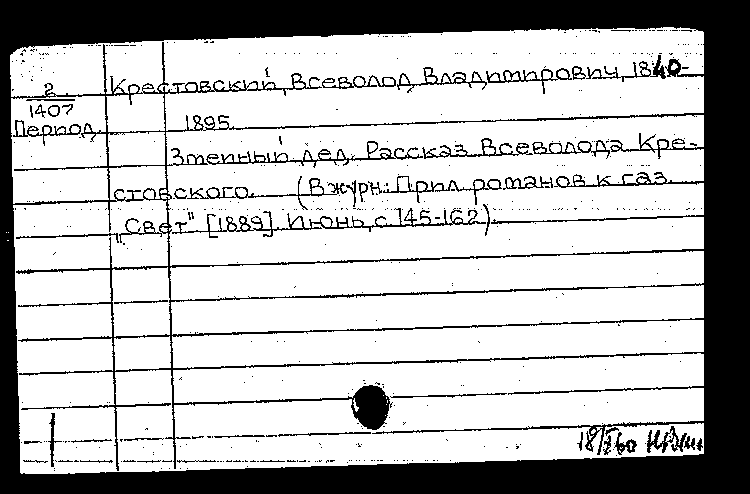 2
1407
Период.
Крестовский, Всеволод Владимирович, 1840-
1895.
Змеиный дед. Рассказ Всеволода Кре-
стовского. (В журн.: Прил. романов к газ.
„Свет" [1889]. Июнь, с. 145-162).